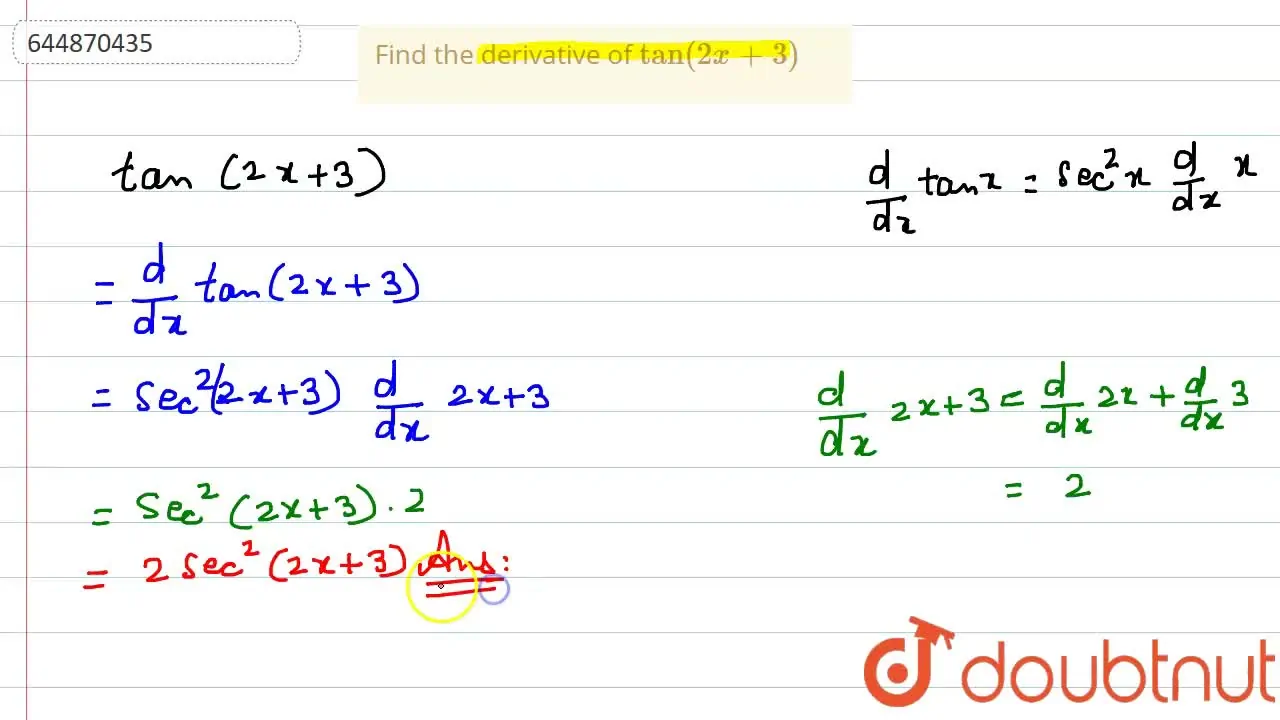 644870435
Find the derivative of tan(2x + 3)
tan (2x+3)
d/dx tanx = sec²x d/dx x
= d/dx tan(2x+3)
= sec²(2x+3) d/dx 2x+3
d/dx 2x+3 = d/dx 2x + d/dx 3
= 2
= sec² (2x+3) . 2
= 2 sec² (2x+3) Ans:
doubtnut